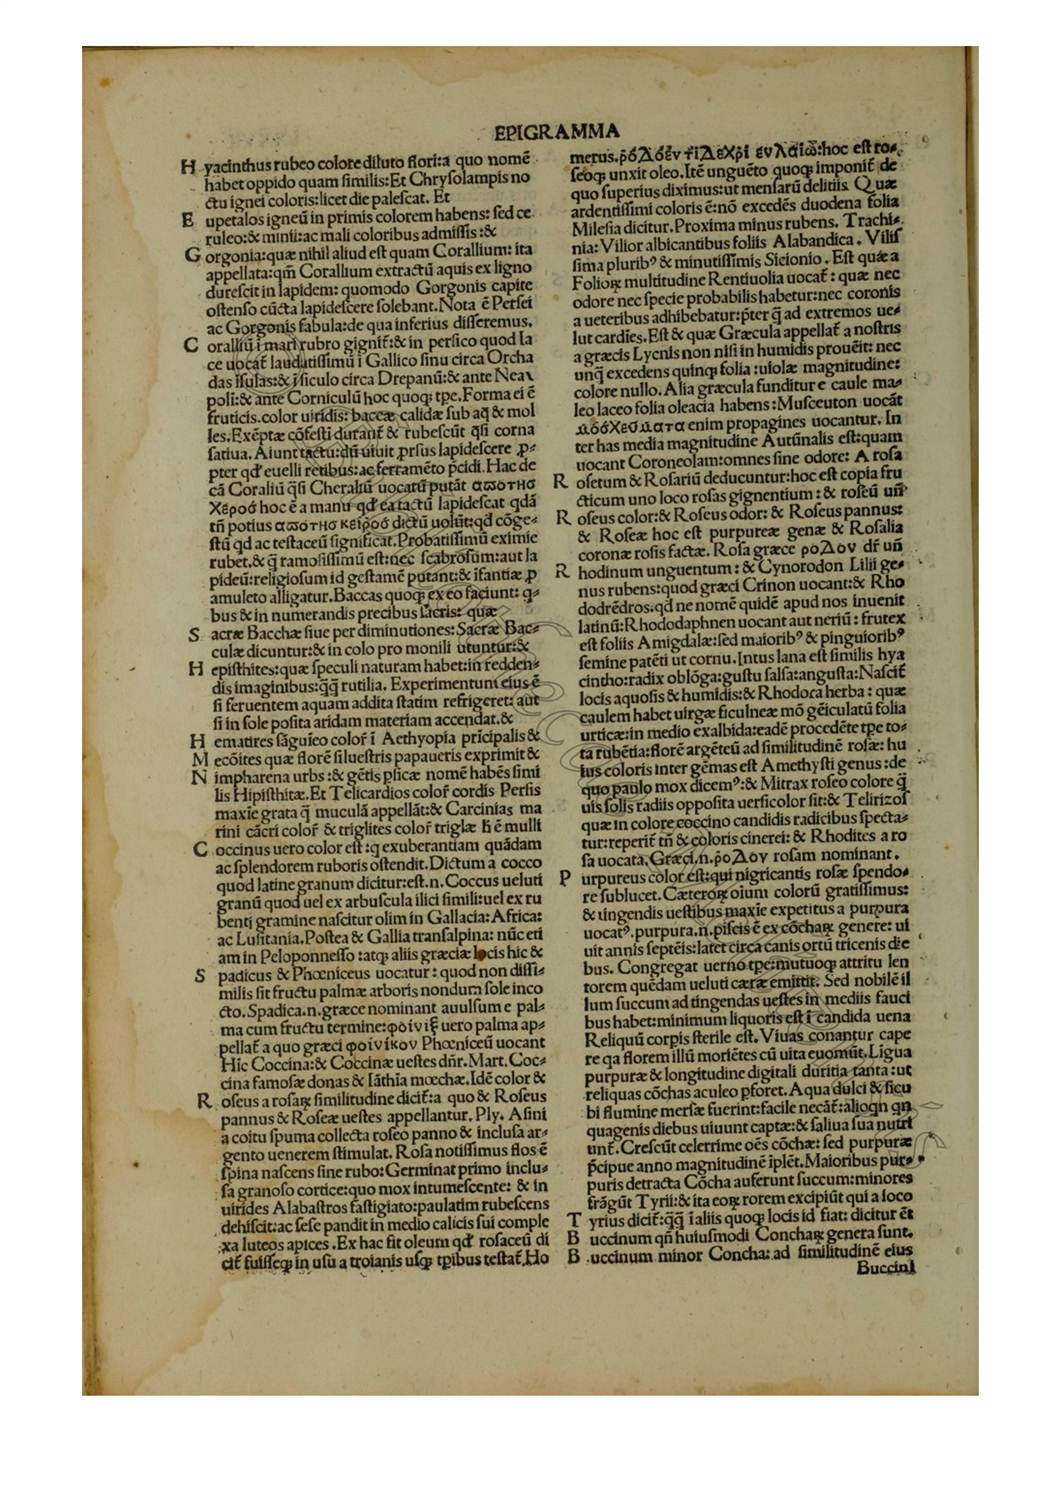 EPIGRAMMA
H yacinthus rubeo colore diluto flori:a quo nomē
habet oppido quam similis:Et Chrysolampis no
ctu ignei coloris:licet die palescat. Et
E upetalos igneū in primis colorem habens: sed ce
ruleo:& minii:ac mali coloribus admissis :&
G orgonia:quæ nihil aliud est quam Corallium: ita
appellata:qm̄ Corallium extractū aquis ex ligno
durescit in lapidem: quomodo Gorgonis capite
ostenso cūcta lapidescere solebant. Nota ē Persei
ac Gorgonis fabula:de qua inferius disseremus.
C oralliū ī mari rubro gignit̄:& in persico quod la
ce uocat̄ laudatissimū ī Gallico sinu circa Orcha
das īsulas:& ī siculo circa Drepanū:& ante Nea
poli:& ante Corniculū hoc quoq; tp̄e. Forma ei ē
fruticis.color uiridis: baccæ calidæ sub aq̄ & mol
les. Exēptæ cōfestī durant̄ & rubescūt q̄si corna
satiua. Aiunt tactū:dū uiuit ꝓrsus lapidescere ꝓ-
pter qd̄ euelli retibus:ac ferramēto p̄cidi. Hac de
cā Coraliū q̄si Cheraliū uocatū putāt αϖοτησ
χεροσ hoc ē a manu qd̄ ea tactū lapidescat qdā
tn̄ potius αϖοτησ κειροσ dictū uolūt:qd̄ cōge-
stū qd ac testaceū significat. Probatissimū eximie
rubet.& q̄ ramosissimū est:nec scabrosum:aut la
pideū:religiosum id gestamē putant:& īfantiæ ꝓ
amuleto alligatur. Baccas quoq; ex eo faciunt: q-
bus & in numerandis precibus sacris: quæ
S acræ Bacchæ siue per diminutiones: Sacræ Bac-
culæ dicuntur:& in colo pro monili utuntur:&
H episthites:quæ speculi naturam habet:in redden-
dis imaginibus:q̄q̄ rutilia. Experimentum eius ē
si feruentem aquam addita statim refrigeret: aut
si in sole posita aridam materiam accendat.&
H ematites sāguīeo color̄ ī Aethyopia prīcipalis &
M ecōites quæ florē siluestris papaueris exprimit &
N impharena urbs :& gētis p̄sicæ nomē habēs simi
lis Hipisthitæ. Et Telicardios color̄ cordis Persis
maxīe grata q̄ muculā appellāt:& Carcinias ma
rini cācri color̄ & triglites color̄ triglæ h̄ ē mulli
C occinus uero color est :q exuberantiam quādam
ac splendorem ruboris ostendit. Dictum a cocco
quod latine granum dicitur:est.n. Coccus ueluti
granū quod uel ex arbuscula ilici simili:uel ex ru
benti gramine nascitur olim in Gallacia: Africa:
ac Lusitania. Postea & Gallia transalpina: nūc eti
am in Peloponnesso :atq; aliis græciæ locis hic &
S padicus & Phœniceus uocatur : quod non dissi-
milis sit fructu palmæ arboris nondum sole inco
cto. Spadica.n.græce nominant auulsum e pal-
ma cum fructu termine:φοίνιξ uero palma ap-
pellat̄ a quo græci φοινίκον Phœniceū uocant
Hic Coccina:& Coccinæ uestes dn̄r. Mart. Coc-
cina famosæ donas & Iāthīa mœchæ. Idē color &
R oseus a rosaꝝ similitudine dicit̄:a quo & Roseus
pannus & Roseæ uestes appellantur. Ply. Asini
a coitu spuma collecta roseo panno & inclusa ar-
gento uenerem stimulat. Rosa notissimus flos ē
spina nascens sine rubo: Germinat primo inclu-
sa granoso cortice:quo mox intumescente: & in
uirides Alabastros fastigiato:paulatim rubescens
dehiscit:ac sese pandit in medio calicis sui comple
xa luteos apices .Ex hac fit oleum qd̄ rosaceū di
cit̄ fuisseq; in usu a troianis usq; tp̄ibus testat̄.Ho
merus.ῥόΔόεν τὶ Δεχρὶ ένλαιῶ:hoc est ro-
seoq; unxit oleo. Itē unguēto quoq; imponit̄ de
quo superius diximus:ut mensarū delitiis Quæ
ardentissimi coloris ē:nō excedēs duodena folia
Milesia dicitur. Proxima minus rubens. Trachi-
nia: Vilior albicantibus foliis Alabandica. Vilis
sima pluribꝰ & minutissimis Sicionio . Est quæ a
Folioꝝ multitudine Rentiuolia uocat̄ : quæ nec
odore nec specie probabilis habetur:nec coronis
a ueteribus adhibebatur:p̄ter q̄ ad extremos ue-
lut cardies. Est & quæ Græcula appellat̄ a nostris
a græcis Lycnis non nisi in humidis prouēit: nec
unq̄ excedens quinq; folia :uiolæ magnitudine:
colore nullo. Alia græcula funditur e caule ma-
leo laceo folia oleacia habens: Musceuton uocāt
enim propagines uocantur. In
ter has media magnitudine Autūnalis est:quam
uocant Coroneolam:omnes sine odore: A rosa
R osetum & Rosariū deducuntur:hoc est copia fru
cticum uno loco rosas gignentium : & roseū un̄
R oseus color:& Roseus odor: & Roseus pannus:
& Roseæ hoc est purpureæ genæ & Rosalia
coronæ rosis factæ. Rosa græce ροΔον dr̄ un̄
R hodinum unguentum : & Cynorodon Lilii ge-
nus rubens:quod græci Crinon uocant:& Rho
dodrēdros:qd ne nomē quidē apud nos inuenit
latinū: Rhododaphnen uocant aut neriū : frutex
est foliis Amigdalæ:sed maioribꝰ & pinguioribꝰ
semine patēti ut cornu. Intus lana est similis hya
cintho:radix oblōga:gustu salsa:angusta: Nascit̄
locis aquosis & humidis:& Rhodora herba : quæ
caulem habet uirgæ ficulneæ mō gēiculatū folia
urticæ:in medio exalbida:eadē procedēte tp̄e to-
ta rubētia:florē argēteū ad similitudinē rosæ: hu
ius coloris inter gēmas est Amethysti genus :de
quo paulo mox dicemꝰ:& Mitrax roseo colore q̄
uis solis radiis opposita uersicolor sit:& Telirizos
quæ in colore coccino candidis radicibus specta-
tur:reperit̄ tn̄ & coloris cinerei: & Rhodites a ro
sa uocata. Græci.n.ῥοΔον rosam nominant.
P urpureus color est:qui nigricantis rosæ spendo-
re sublucet. Cæteroꝝ oium colorū gratissimus:
& tingendis uestibus maxīe expetitus a purpura
uocatꝰ.purpura.n.piscis ē ex cōchaꝝ genere: ui
uit annis septēis:latet circa canis ortū tricenis die
bus. Congregat uerno tp̄e:mutuoq; attritu len
torem quēdam ueluti cæræ emittit. Sed nobilē il
lum succum ad tingendas uestes in mediis fauci
bus habet:minimum liquoris est ī candida uena
Reliquū corpis sterile est. Viuas conantur cape
re qa florem illū moriētes cū uita euomūt. Ligua
purpuræ & longitudine digitali duritia tanta :ut
reliquas cōchas aculeo p̄foret. Aqua dulci & sicu
bi flumine mersæ fuerint:facile necāt̄:alioqn qn̄
quagenis diebus uiuunt captæ:& saliua sua nutri
unt̄. Crescūt celerrime oēs cōchæ: sed purpuræ
p̄cipue anno magnitudinē īplēt. Maioribus pur-
puris detracta Cōcha auferunt succum:minores
frāgūt Tyrii:& ita eoꝝ rorem excipiūt qui a loco
T yrius dicit̄:q̄q̄ ī aliis quoq; locis id fiat: dicitur ēt
B uccinum qn̄ huiusmodi Conchaꝝ genera sunt.
B uccinum minor Concha: ad similitudinē eius
Buccini